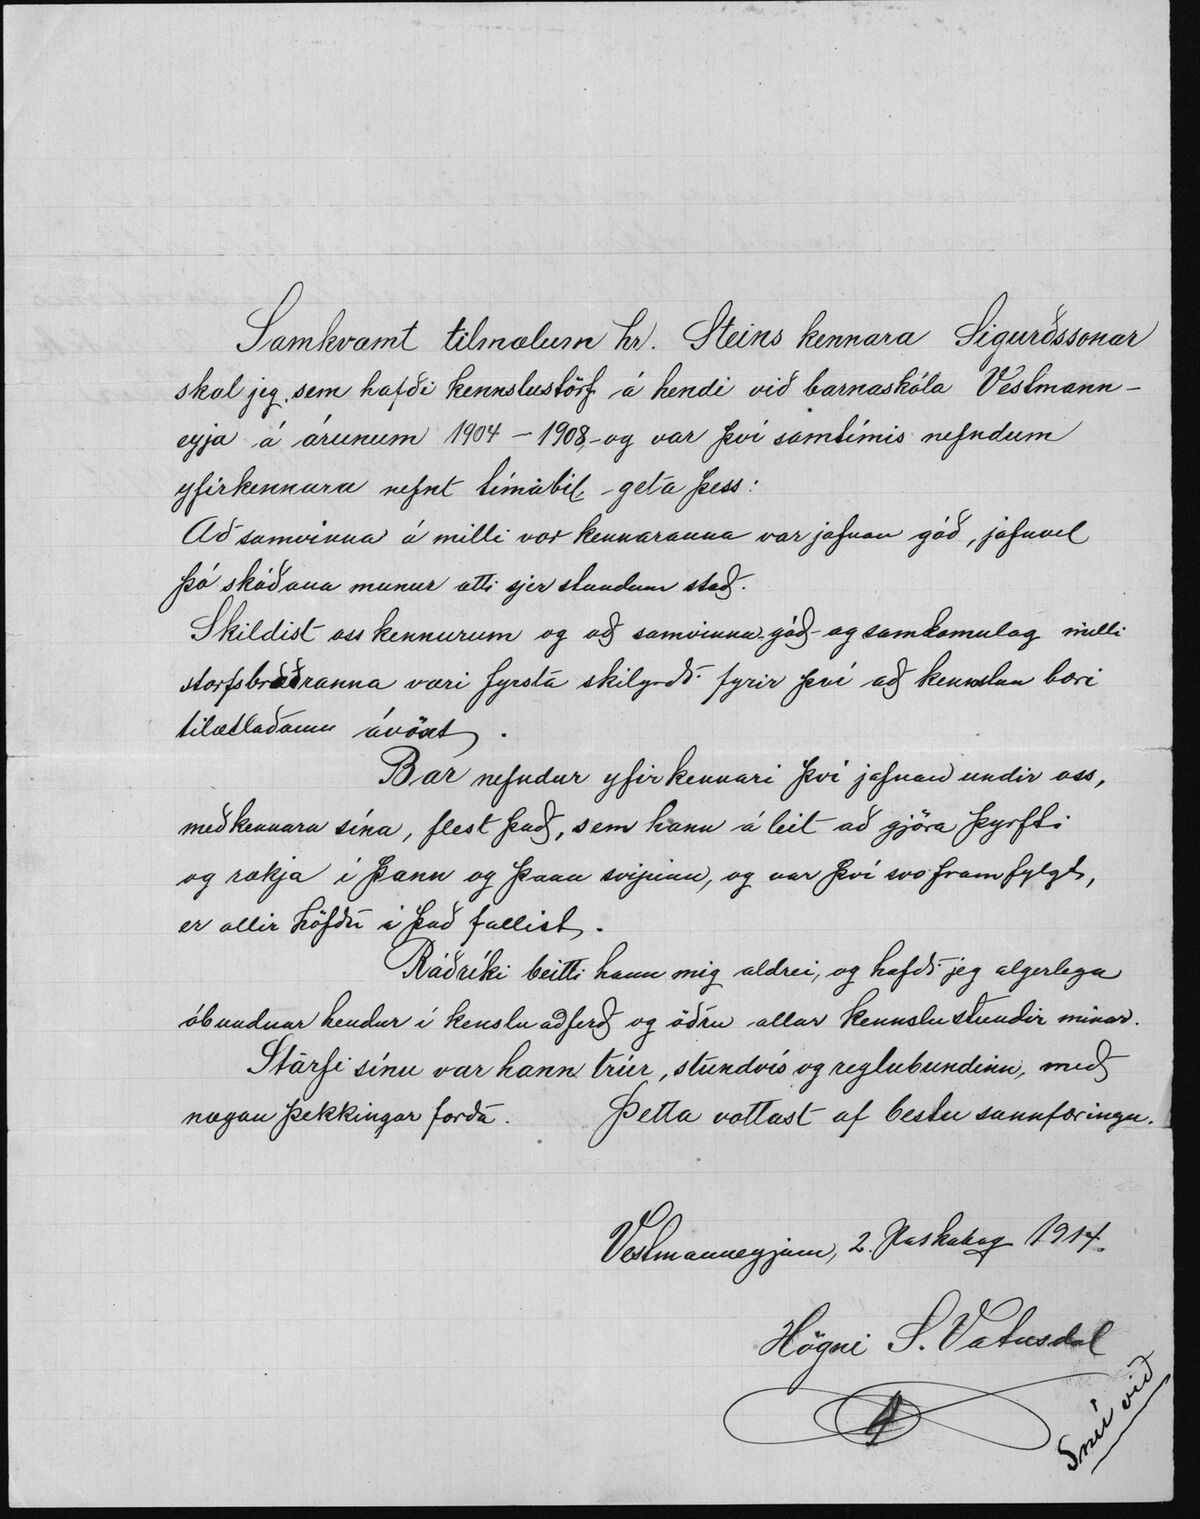 Samkvæmt tilmælum hr. Steins kennara Sigurðssonar
skal jeg, sem hafði kennslustörf á hendi við barnaskóla Vestmann-
eyja á árunum 1904 – 1908, og var því samtímis nefndum
yfirkennara nefnt tímabil, geta þess:
Að samvinna á milli vor kennaranna var jafnan góð, jafnvel
þó skoðana munur ætti sjer stundum stað.
Skildist oss kennurum og að samvinna góð og samkomulag milli
starfsbræðranna væri fyrsta skilyrði fyrir því að kennslan bæri
tilætlaðann ávöxt.
Bar nefndur yfirkennari því jafnan undir oss,
meðkennara sína, flest það, sem hann áleit að gjöra þyrfti
og rækja í þann og þann svipinn, og var því svo framfylgt,
er allir höfðu á það fallist.
Ráðríki beitti hann mig aldrei, og hafði jeg algerlega
óbundnar hendur í kenslu aðferð og öðru allar kennslustundir mínar.
Starfi sínu var hann trúr, stundvís og reglubundinn, með
nægan þekkingar forða. Þetta vottast af bestu sannfæringu.
Vestmanneyjum, 2. Páskadag 1914.
Högni S. Vatnsdal
Snú við
4